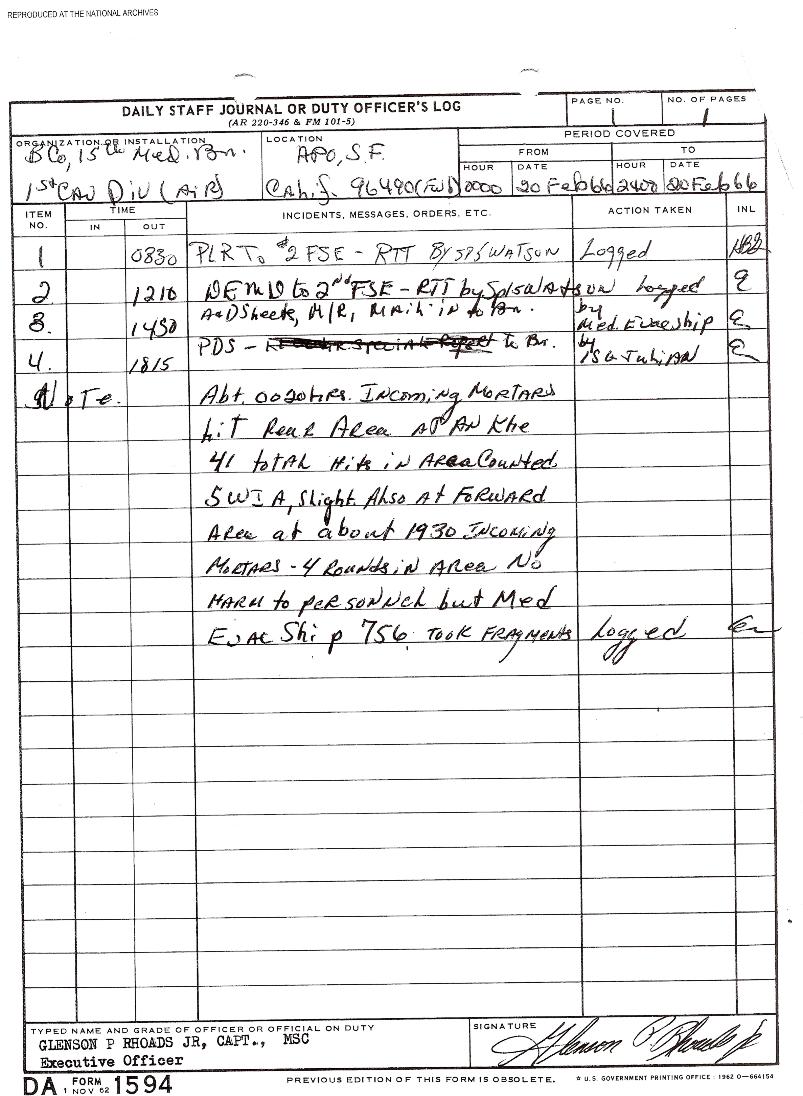 REPRODUCED AT THE NATIONAL ARCHIVES
DAILY STAFF JOURNAL OR DUTY OFFICER'S LOG
(AR 220-346 & FM 101-5)
PAGE NO.
1
NO. OF PAGES
1
ORGANIZATION OR INSTALLATION
B Co, 15th Med. Bn.
1st CAV DIV (AIR)
LOCATION
APO, S.F.
Calif. 96490 (Fwd)
PERIOD COVERED
FROM TO
HOUR DATE HOUR DATE
0000 20 Feb 66 2400 20 Feb 66
ITEM NO. TIME INCIDENTS, MESSAGES, ORDERS, ETC. ACTION TAKEN INL
IN OUT
1 0830 PLR To #2 FSE - RTT BY SP5 WATSON Logged
2 1210 to 2nd FSE - RTT by Sp5 WATSON Logged
3. 1430 A&D Sheets, M/R, MAil in to Bn. by Med. Evac Ship
4. 1815 PDS - to Bn. by
Note. Abt. 0020 hrs. INComing MORTARS
hiT Rear Area AT AN Khe
41 total Hits in Area Counted
5 WIA, Slight. Also At FORWARD
AREA at about 1930 INCOMING
MORTARS - 4 ROUNDS iN AReA No
HARM to peRSONNel but Med
Evac Ship 756 TOOK FRAGMENTS Logged
TYPED NAME AND GRADE OF OFFICER OR OFFICIAL ON DUTY
GLENSON P RHOADS JR, CAPT., MSC
Executive Officer
SIGNATURE
Glenson P. Rhoads Jr
DA FORM 1 NOV 62 1594
PREVIOUS EDITION OF THIS FORM IS OBSOLETE.
* U.S. GOVERNMENT PRINTING OFFICE : 1962 O-664154